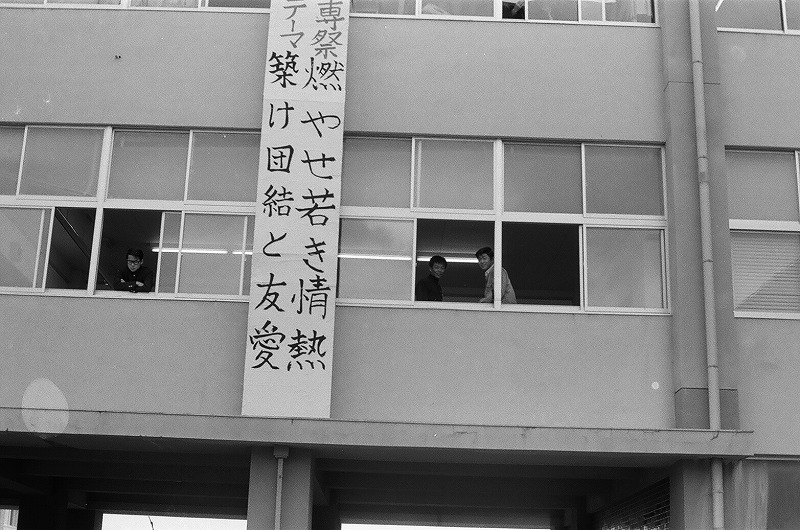 専祭燃やせ若き情熱
テーマ築け団結と友愛